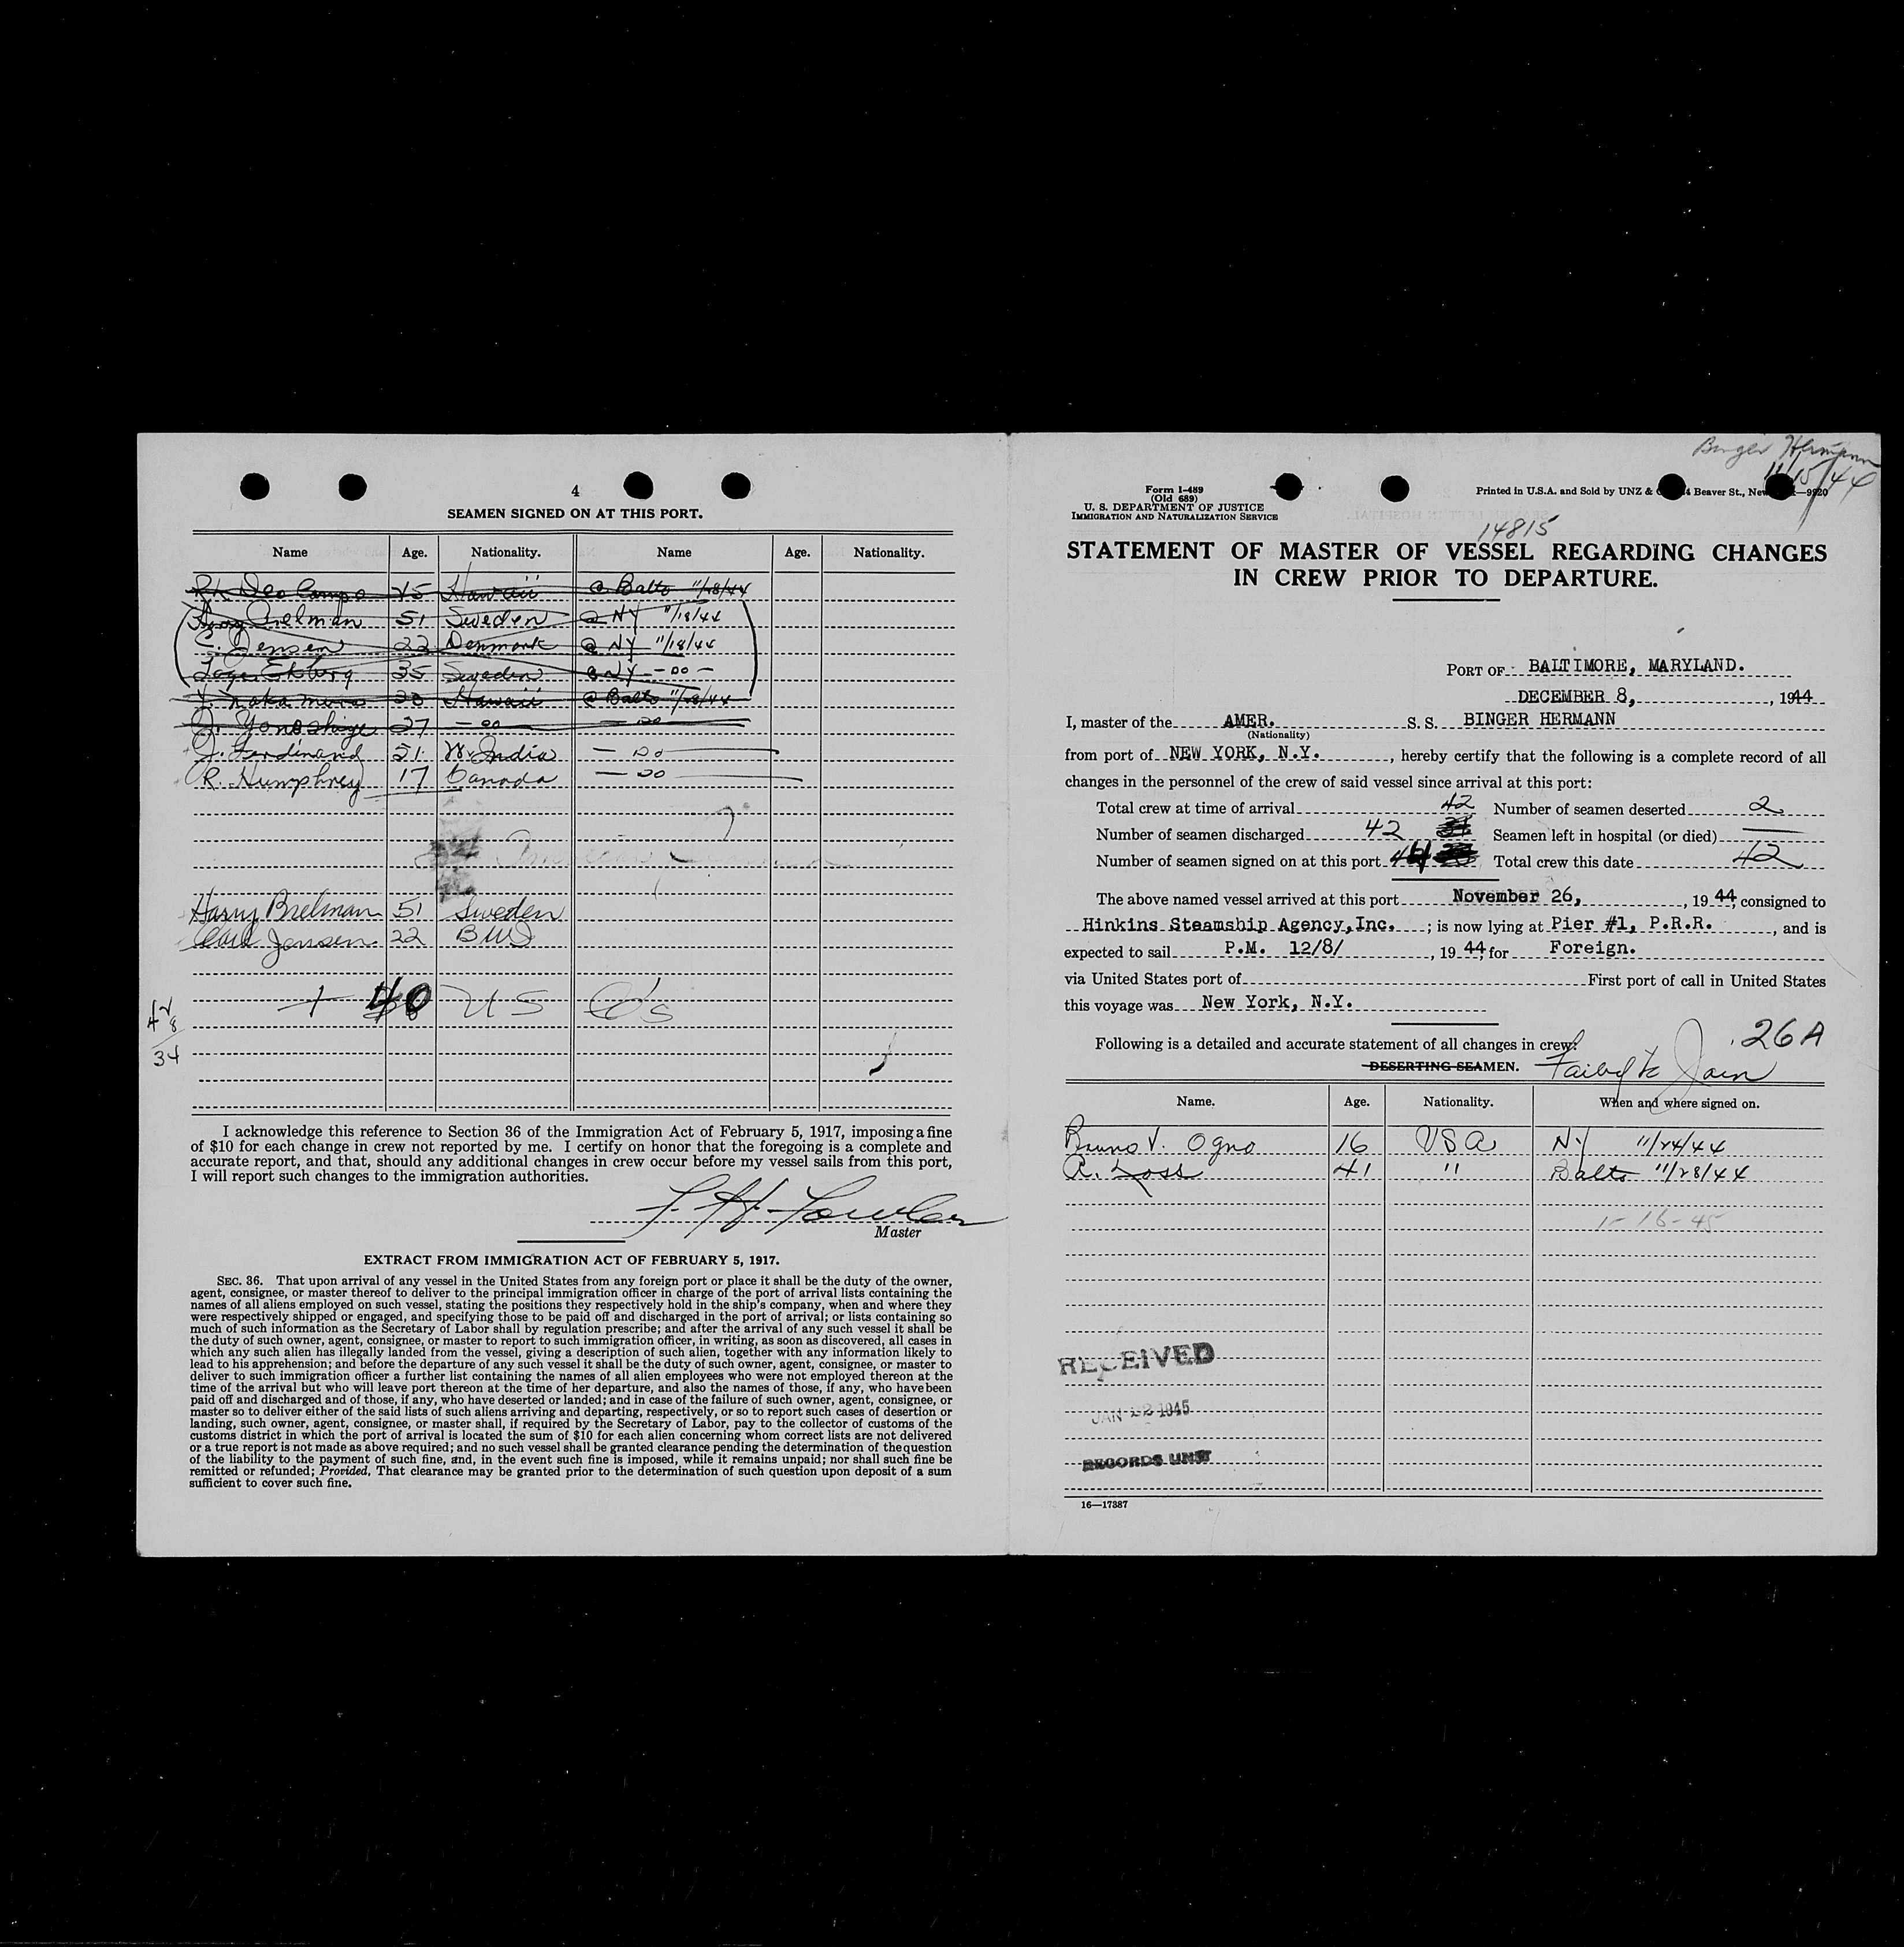 4
SEAMEN SIGNED ON AT THIS PORT.
Name Age. Nationality. Name Age. Nationality.
45 Hawaii @ Balto 11/28/44
51 Sweden @ NY 11/18/44
C. Jensen 22 Denmark @ NY 11/18/44
35 Sweden @ NY - DO -
Hawaii @ Balto 11/28/44
J. Yonashige 27 - DO - - DO -
J. Ferdinand 51 W. India - DO -
R. Humphrey 17 Canada - DO -
Harry Brelman 51 Sweden
Carl Jensen 22 BWI
+ 40 US C's
42
8
34
I acknowledge this reference to Section 36 of the Immigration Act of February 5, 1917, imposing a fine
of $10 for each change in crew not reported by me. I certify on honor that the foregoing is a complete and
accurate report, and that, should any additional changes in crew occur before my vessel sails from this port,
I will report such changes to the immigration authorities.
Master
EXTRACT FROM IMMIGRATION ACT OF FEBRUARY 5, 1917.
SEC. 36. That upon arrival of any vessel in the United States from any foreign port or place it shall be the duty of the owner,
agent, consignee, or master thereof to deliver to the principal immigration officer in charge of the port of arrival lists containing the
names of all aliens employed on such vessel, stating the positions they respectively hold in the ship's company, when and where they
were respectively shipped or engaged, and specifying those to be paid off and discharged in the port of arrival; or lists containing so
much of such information as the Secretary of Labor shall by regulation prescribe; and after the arrival of any such vessel it shall be
the duty of such owner, agent, consignee, or master to report to such immigration officer, in writing, as soon as discovered, all cases in
which any such alien has illegally landed from the vessel, giving a description of such alien, together with any information likely to
lead to his apprehension; and before the departure of any such vessel it shall be the duty of such owner, agent, consignee, or master to
deliver to such immigration officer a further list containing the names of all alien employees who were not employed thereon at the
time of the arrival but who will leave port thereon at the time of her departure, and also the names of those, if any, who have been
paid off and discharged and of those, if any, who have deserted or landed; and in case of the failure of such owner, agent, consignee, or
master so to deliver either of the said lists of such aliens arriving and departing, respectively, or so to report such cases of desertion or
landing, such owner, agent, consignee, or master shall, if required by the Secretary of Labor, pay to the collector of customs of the
customs district in which the port of arrival is located the sum of $10 for each alien concerning whom correct lists are not delivered
or a true report is not made as above required; and no such vessel shall be granted clearance pending the determination of the question
of the liability to the payment of such fine, and, in the event such fine is imposed, while it remains unpaid; nor shall such fine be
remitted or refunded; Provided, That clearance may be granted prior to the determination of such question upon deposit of a sum
sufficient to cover such fine.
Binger Hermann
11/15/44
Form I-489
(Old 689)
U. S. DEPARTMENT OF JUSTICE
IMMIGRATION AND NATURALIZATION SERVICE
Printed in U.S.A. and Sold by UNZ & Beaver St., New —9920
14815
STATEMENT OF MASTER OF VESSEL REGARDING CHANGES
IN CREW PRIOR TO DEPARTURE.
PORT OF BALTIMORE, MARYLAND.
DECEMBER 8, , 1944
I, master of the AMER. S. S. BINGER HERMANN
(Nationality)
from port of NEW YORK, N.Y. , hereby certify that the following is a complete record of all
changes in the personnel of the crew of said vessel since arrival at this port:
Total crew at time of arrival 42 Number of seamen deserted 2
Number of seamen discharged 42 Seamen left in hospital (or died) —
Number of seamen signed on at this port 44 Total crew this date 42
The above named vessel arrived at this port November 26, , 19 44, consigned to
Hinkins Steamship Agency,Inc. ; is now lying at Pier #1, P.R.R. , and is
expected to sail P.M. 12/8/ , 19 44, for Foreign.
via United States port of First port of call in United States
this voyage was New York, N.Y.
Following is a detailed and accurate statement of all changes in crew: 26A
DESERTING SEAMEN. Failed to Join
Name. Age. Nationality. When and where signed on.
Bruno V. Ogno 16 USA NY 11/24/44
R. Ross 41 " Balto 11/28/44
1-16-45
RECEIVED
JAN 22 1945
RECORDS UNIT
16—17387